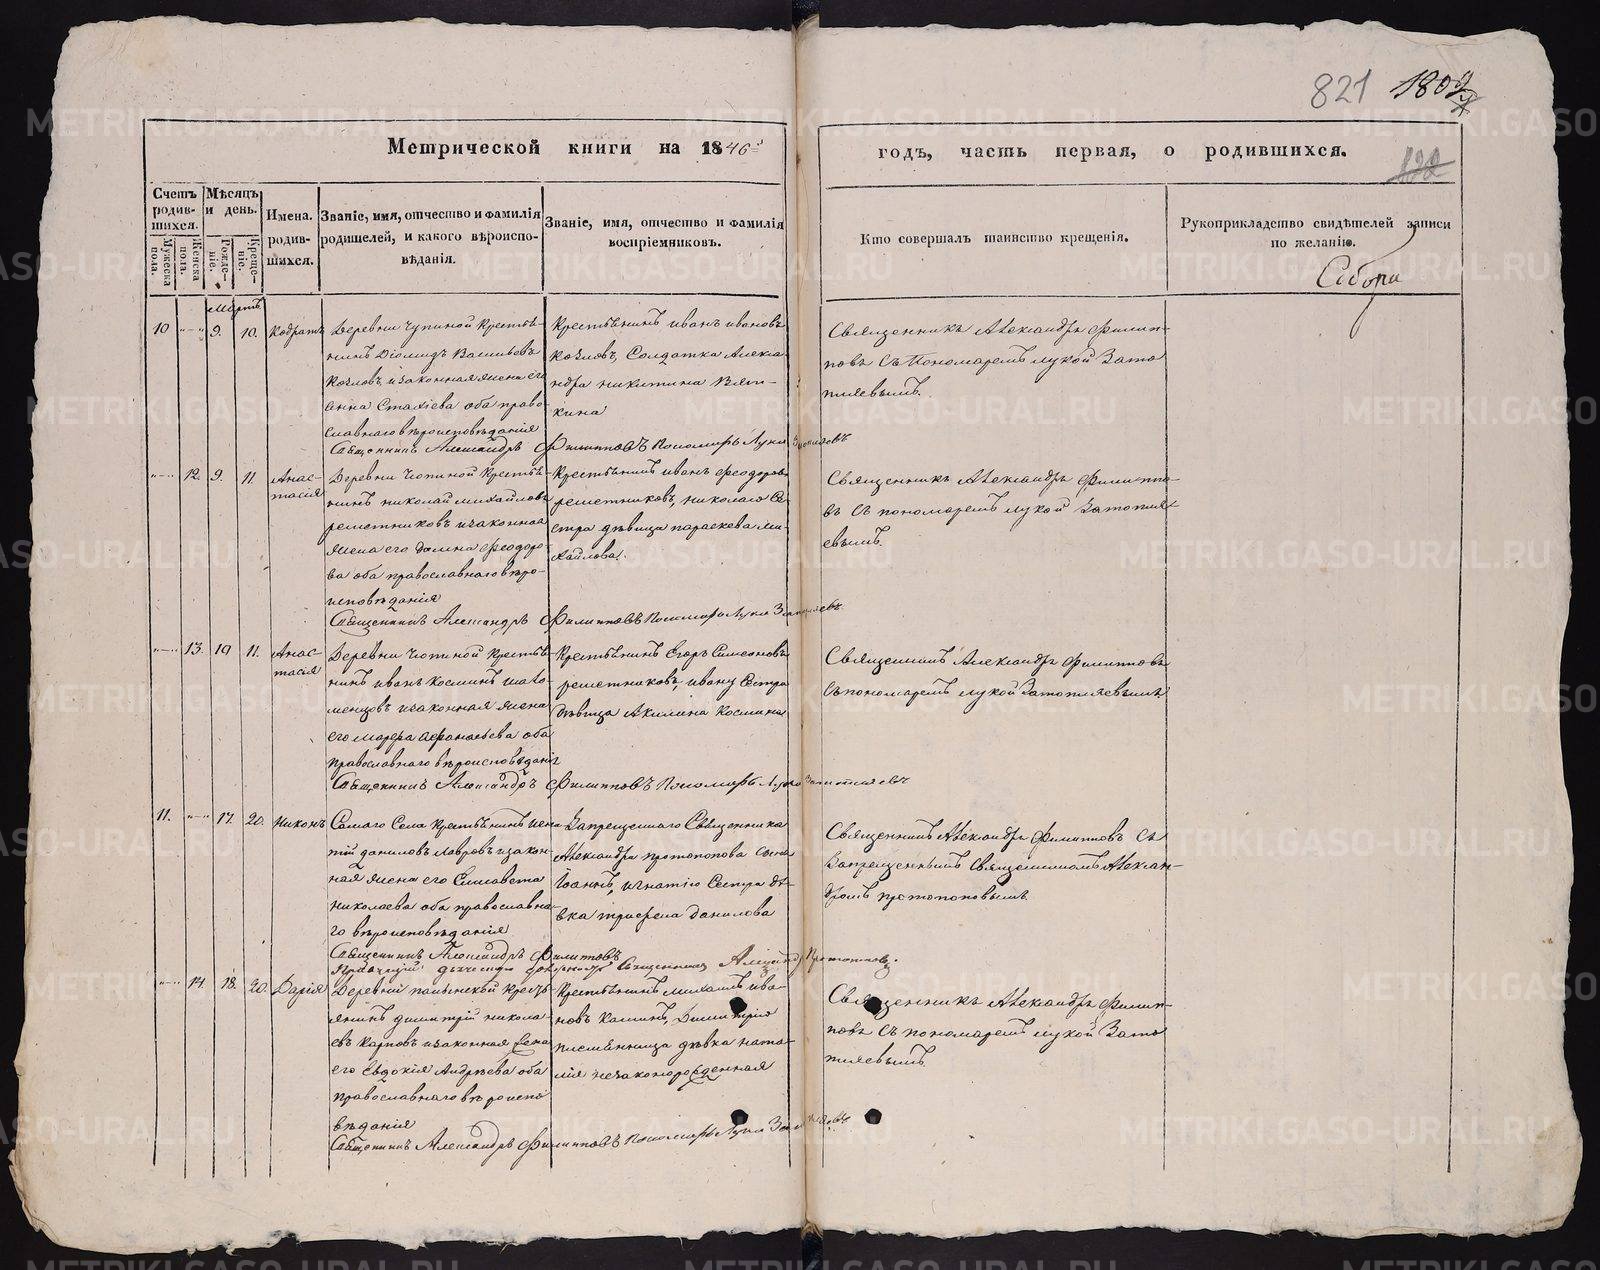 821 180
Метрической книги на 1846й годъ, часть первая, о родившихся.
122
Счетъ родив-шихся.
Мужеска пола.
Женска пола.
Мѣсяцъ и день.
Рожде-ніе.
Креще-ніе.
Имена. родив-шихся.
Званіе, имя, отчество и фамилія
родителей, и какого вѣроиспо-
вѣданія.
Званіе, имя, отчество и фамилія
воспріемниковъ.
Кто совершалъ таинство крещенія.
Рукоприкладство свидѣтелей записи
по желанію.
Мартъ
10 9. 10. Кодратъ
Деревни Чупиной крестья-
нинъ Діомидъ Васильевъ
Козловъ, и законная жена его
Анна Стахіева оба право-
славнаго вѣроисповѣданія
Крестьянинъ Иванъ Ивановъ
Козловъ, Солдатка Алекса-
ндра Никитина Вят-
кина
Священникъ Александръ Филип-
повъ съ Пономаремъ Лукой Зато
пляевымъ.
Священникъ Александръ Филипповъ Пономарь Лука
12. 9. 11. Анас-
тасія
Крестьянинъ Иванъ Феодоровъ
нинъ Николай Михайловъ
Решетниковъ, Николаю Се-
Решетниковъ и законная
стра дѣвица Параскева Ми-
хайлова.
жена его Домна Феодоро-
ва оба православнаго вѣро-
исповѣданія
Священникъ Александръ Филиппо-
въ съ пономаремъ Лукой Затопля-
евымъ.
Священникъ Александръ Филипповъ Пономарь Лука
13. 10 11. Анас-
тасія
нинъ Иванъ Косминъ
и законная жена
его Марфа Афанасьева оба
православнаго вѣроисповѣданія
Крестьянинъ Егоръ Симеоновъ
Решетниковъ, Ивану Сестра
дѣвица Акилина Космина
Священникъ Александръ Филипповъ
съ пономаремъ Лукой Затопляевымъ
Священникъ Александръ Филипповъ Пономарь Лука
11. 17. 20. Никонъ
Самаго Села крестьянинъ Игна-
тій Даниловъ Лавровъ и закон-
ная жена его Елисавета
Николаева оба православна-
го вѣроисповѣданія
Запрещеннаго Священника
Александра Протопопова сынъ
Іоаннъ, Игнатію Сестра дѣ-
вка Трифена Данилова
Священникъ Александръ Филипповъ съ
Запрещеннымъ Священникомъ Алексан-
дромъ Протопоповымъ.
Священникъ Александръ Филипповъ
14. 18. 20. Дарія
янинъ Димитрій Никола-
евъ Карповъ и законная жена
его Евдокія Андреева оба
православнаго вѣроиспо
вѣданія
Крестьянинъ Михаилъ Ива-
новъ Кашинъ, Димитрія
племянница дѣвка Ната-
лія незаконорожденная
Священникъ Александръ Филип-
повъ съ пономаремъ Лукой Зато
пляевымъ.
Священникъ Александръ Филипповъ Пономарь Лука
METRIKI.GASO-URAL.RU